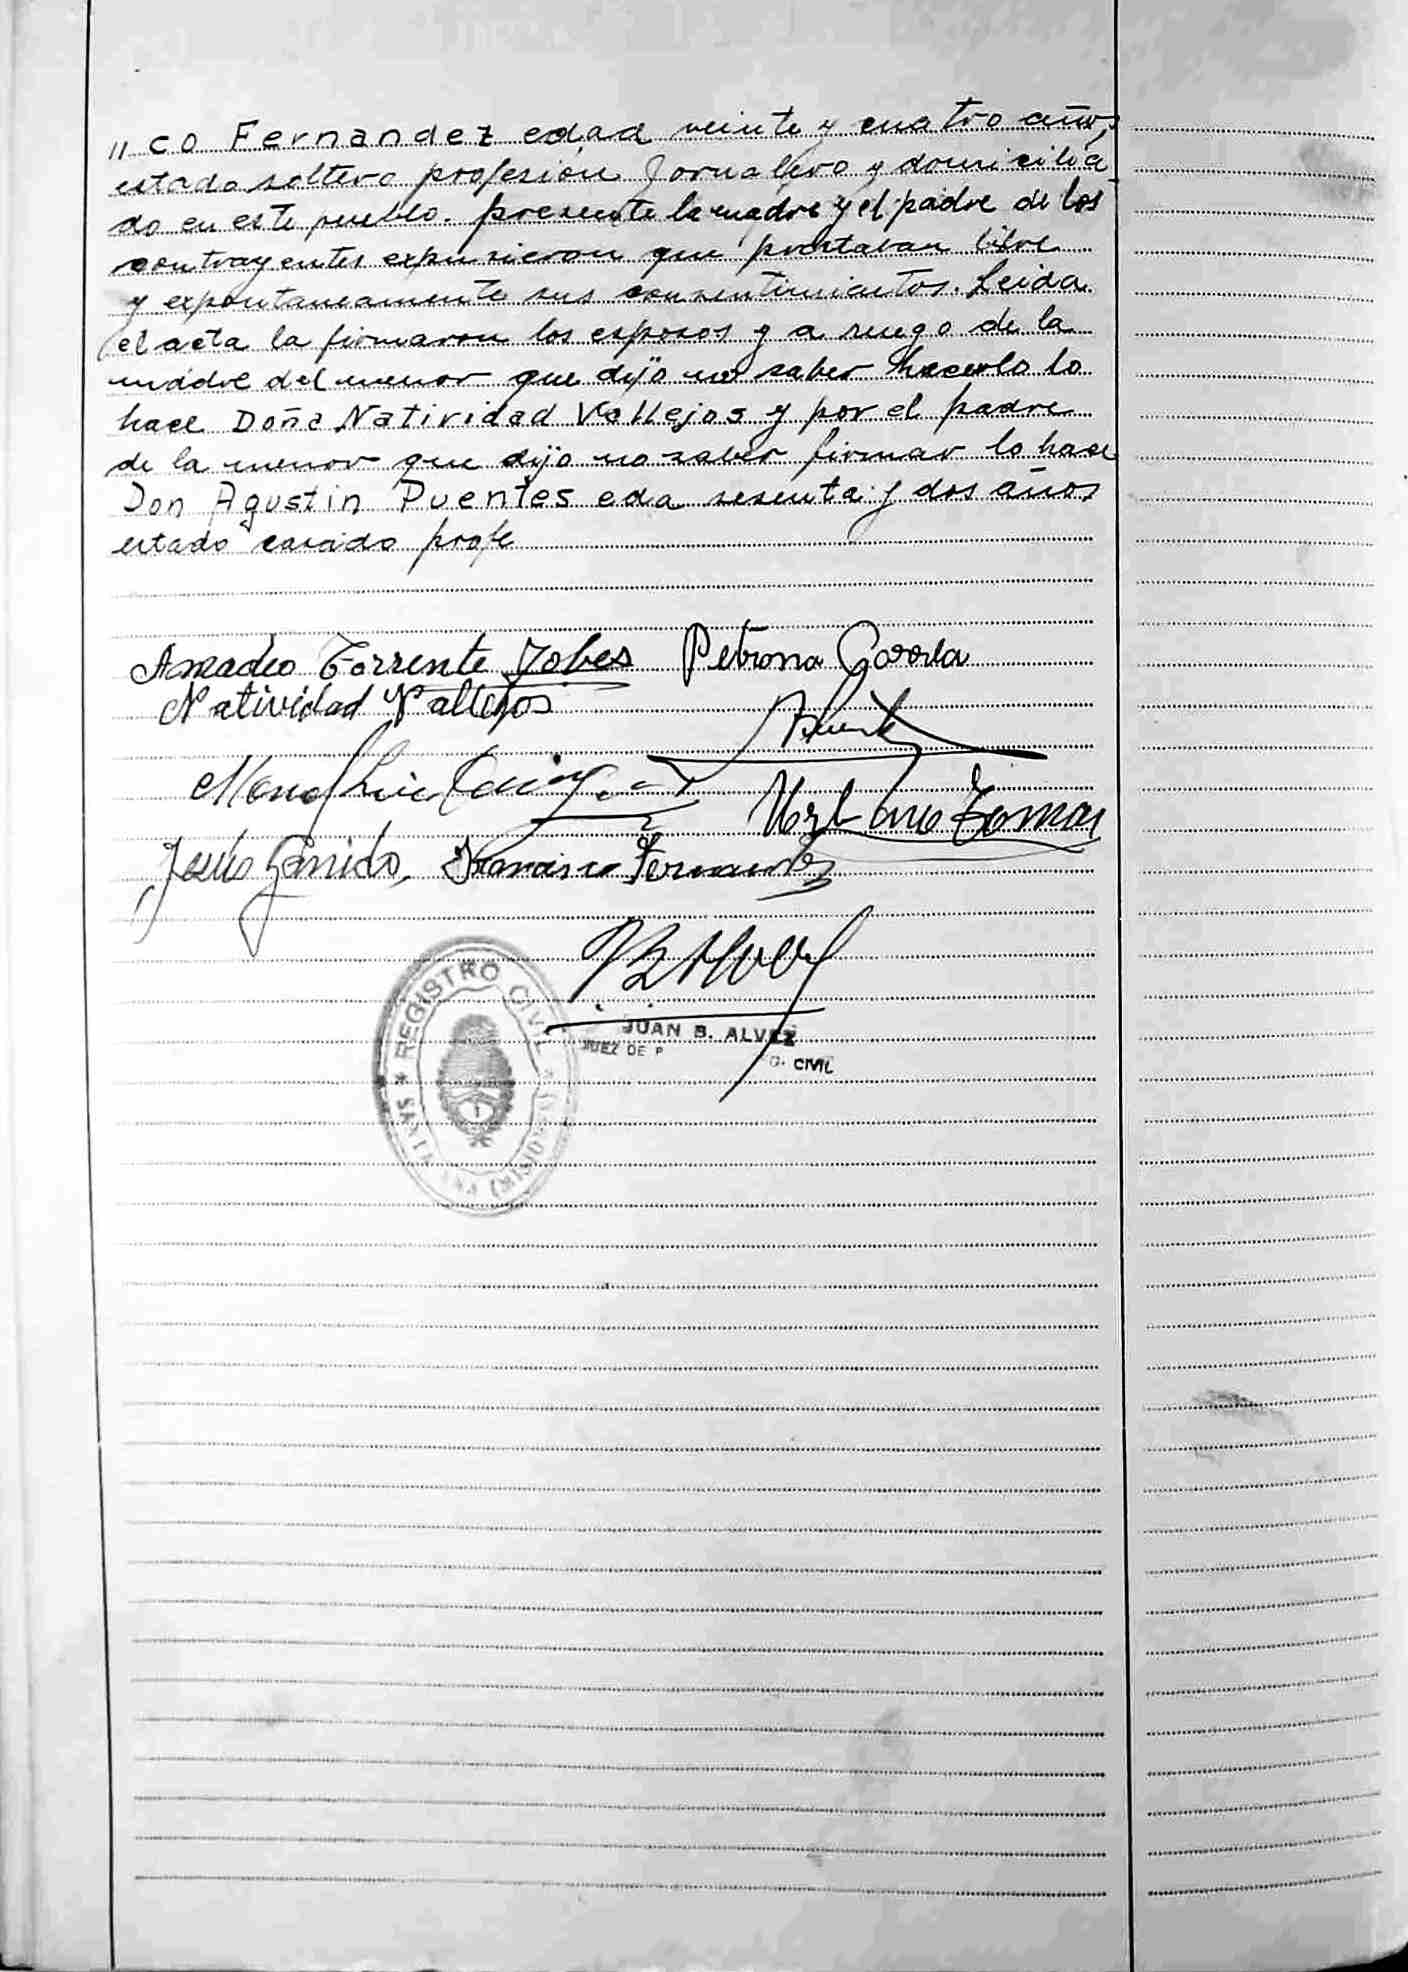 "co Fernandez edad veinte y cuatro años,
estado soltero profesión Jornalero y domicilia-
do en este pueblo. presente la madre y el padre de los
contrayentes expusieron que prestavan libre
y expontaneamente sus consentimientos. Leida
el acta la firmaron los esposos y a ruego de la
madre del menor que dijo no saber hacerlo lo
hace Doña Natividad Vallejos y por el padre
de la menor que dijo no saber firmar lo hace
Don Agustin Puentes eda sesenta y dos años
estado casado profe
Amadeo Torrente Petrona
Natividad Vallejos
Jesús Garrido, Francisco Fernandez
REGISTRO CIVIL
JUAN B. ALVEZ
JUEZ DE P
CIVIL
(MISIONES)